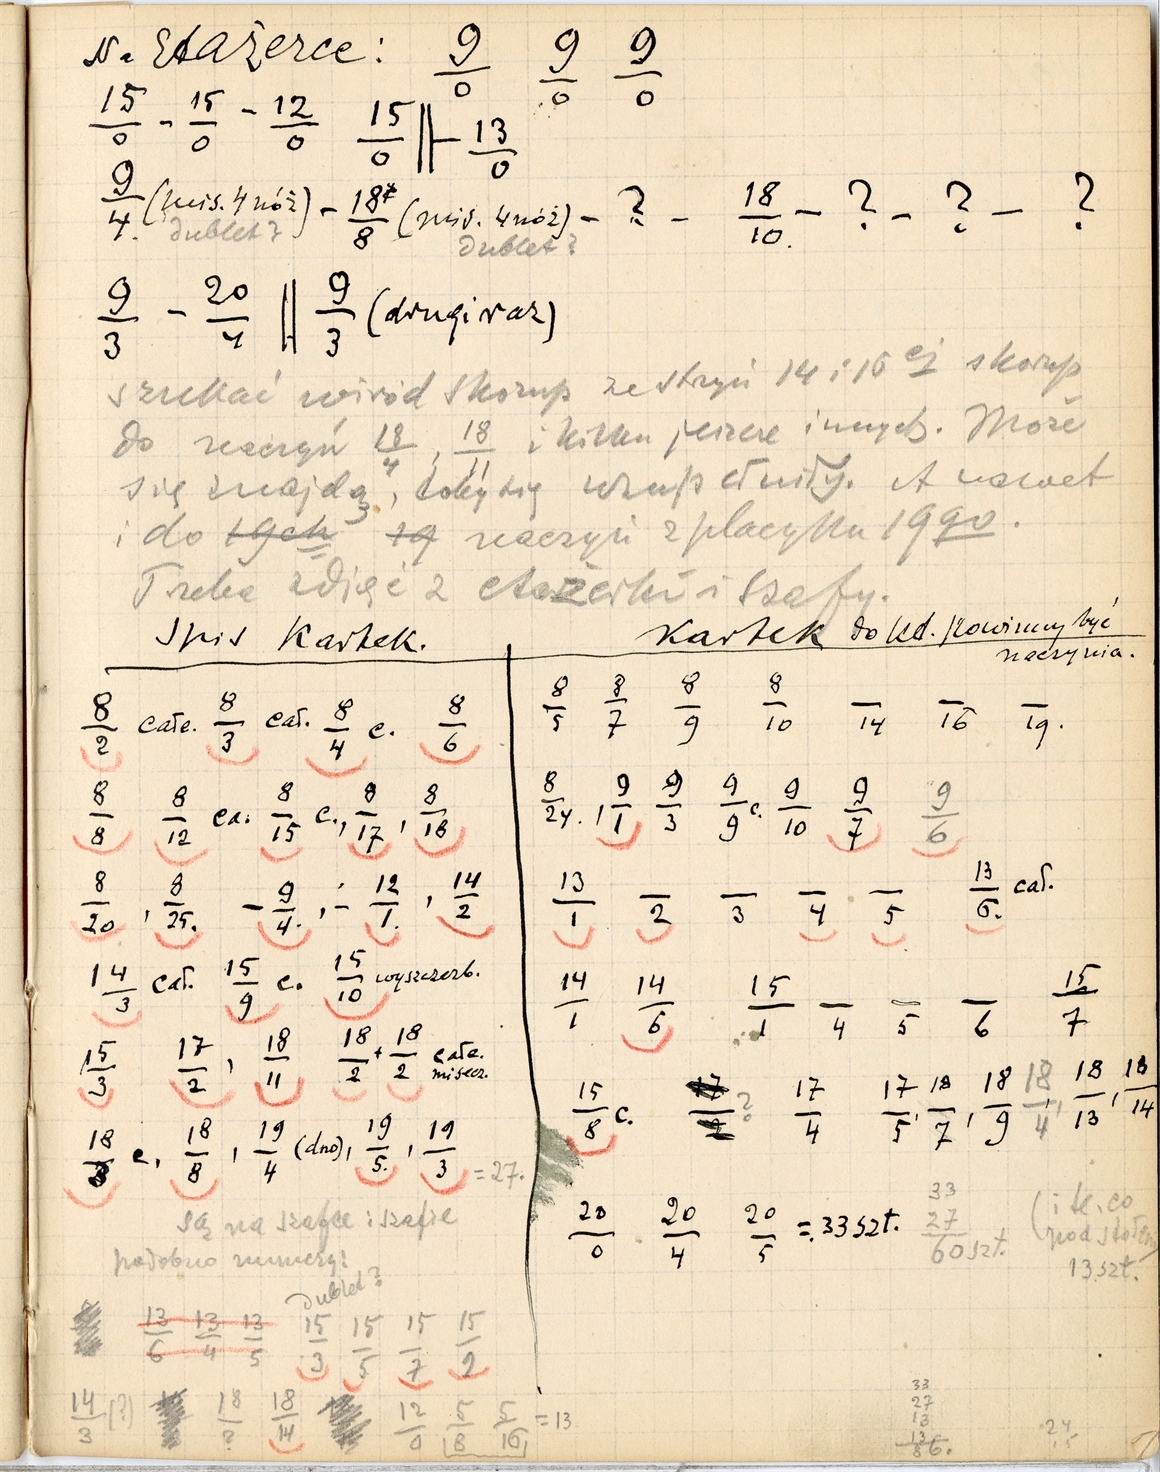 Na Etażerce: 9/0 9/0 9/0
15/0 - 15/0 - 12/0 15/0 || - 13/0
9/4. (mis. 4 nóż) - 18/8 (mis. 4 nóż) - ? - 18/10. - ? - ? - ?
dublet? dublet?
9/3 - 20/4 || 9/3 (drugi raz)
szukać wśród skorup ze stryń 14 i 16 ej skorup
do naczyń 18/4, 18/11 i kilku jeszcze innych. Może
się znajdą, toby się uzupełniły. A nawet
i do naczyń z placyku 1990.
Trzeba zdjąć z etażerki i szafy.
Spis Kartek.
8/2 całe. 8/3 cał. 8/4 c. 8/6
8/8 8/12 ca. 8/15 c., 8/17, 8/18
8/20, 8/25. - 9/4., - 12/1., 14/2
14/3 cał. 15/9 c. 15/10 wyszczerb.
15/3 17/2, 18/11 18/2 + 18/2 całe. misecz.
18/3 c, 18/8, 19/4 (dno), 19/5., 19/3 = 27.
są na szafce i szafie
podobno numery:
dublet?
13/6 13/4 13/5 15/3 15/5 15/7 15/2
14/3 (?) 18/? 18/14 12/0 5/8 5/16 = 13
Kartek do kt. powinny być
naczynia.
8/5 8/7 8/9 8/10 –/14 –/16 –/19.
8/24., 9/1 9/3 9/9 c. 9/10 9/7 9/6
13/1 –/2 –/3 –/4 –/5 13/6. cał.
14/1 14/6 15/1 –/4 –/5 –/6 15/7
15/8 c. 17/2 ? 17/4 17/5, 18/7, 18/9 18/4, 18/13, 18/14
20/0 20/4 20/5 = 33 szt.
33
27
60 szt.
(i te. co
pod stołem
13 szt.
33
27
13
13
86.
24